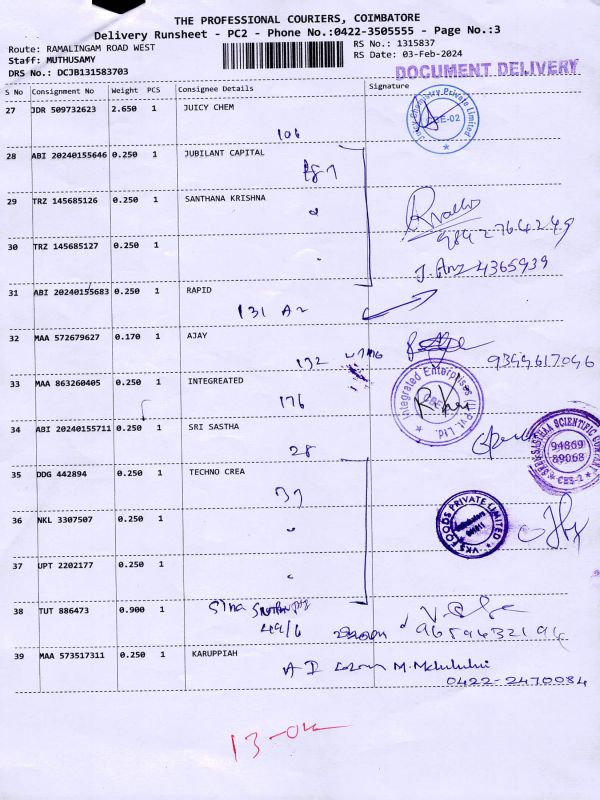 THE PROFESSIONAL COURIERS, COIMBATORE
Delivery Runsheet - PC2 - Phone No.:0422-3505555 - Page No.:3
Route: RAMALINGAM ROAD WEST RS No.: 1315837
Staff: MUTHUSAMY RS Date: 03-Feb-2024
DRS No.: DCJB131583703
DOCUMENT DELIVERY
S No Consignment No Weight PCS Consignee Details Signature
27 JDR 509732623 2.650 1 JUICY CHEM
106
28 ABI 20240155646 0.250 1 JUBILANT CAPITAL
29 TRZ 145685126 0.250 1 SANTHANA KRISHNA
9842764249
30 TRZ 145685127 0.250 1
4365939
31 ABI 20240155683 0.250 1 RAPID
131 A2
32 MAA 572679627 0.170 1 AJAY
132
9344617046
33 MAA 863260405 0.250 1 INTEGREATED
176
Integrated Enterprises Pvt. Ltd.
34 ABI 20240155711 0.250 1 SRI SASTHA
28
94869
89068
CBS-2
35 DDG 442894 0.250 1 TECHNO CREA
37
VKS FOODS PRIVATE LIMITED
36 NKL 3307507 0.250 1
37 UPT 2202177 0.250 1
38 TUT 886473 0.900 1
49/6
9689432194
39 MAA 573517311 0.250 1 KARUPPIAH
0422-2470084